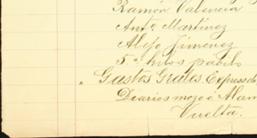 Ramón Valencia
Anto Martinez
Alejo Jimenez
5 hilos
Gastos Grales Expresado
Diarios mozo á Alam
Vuelta.